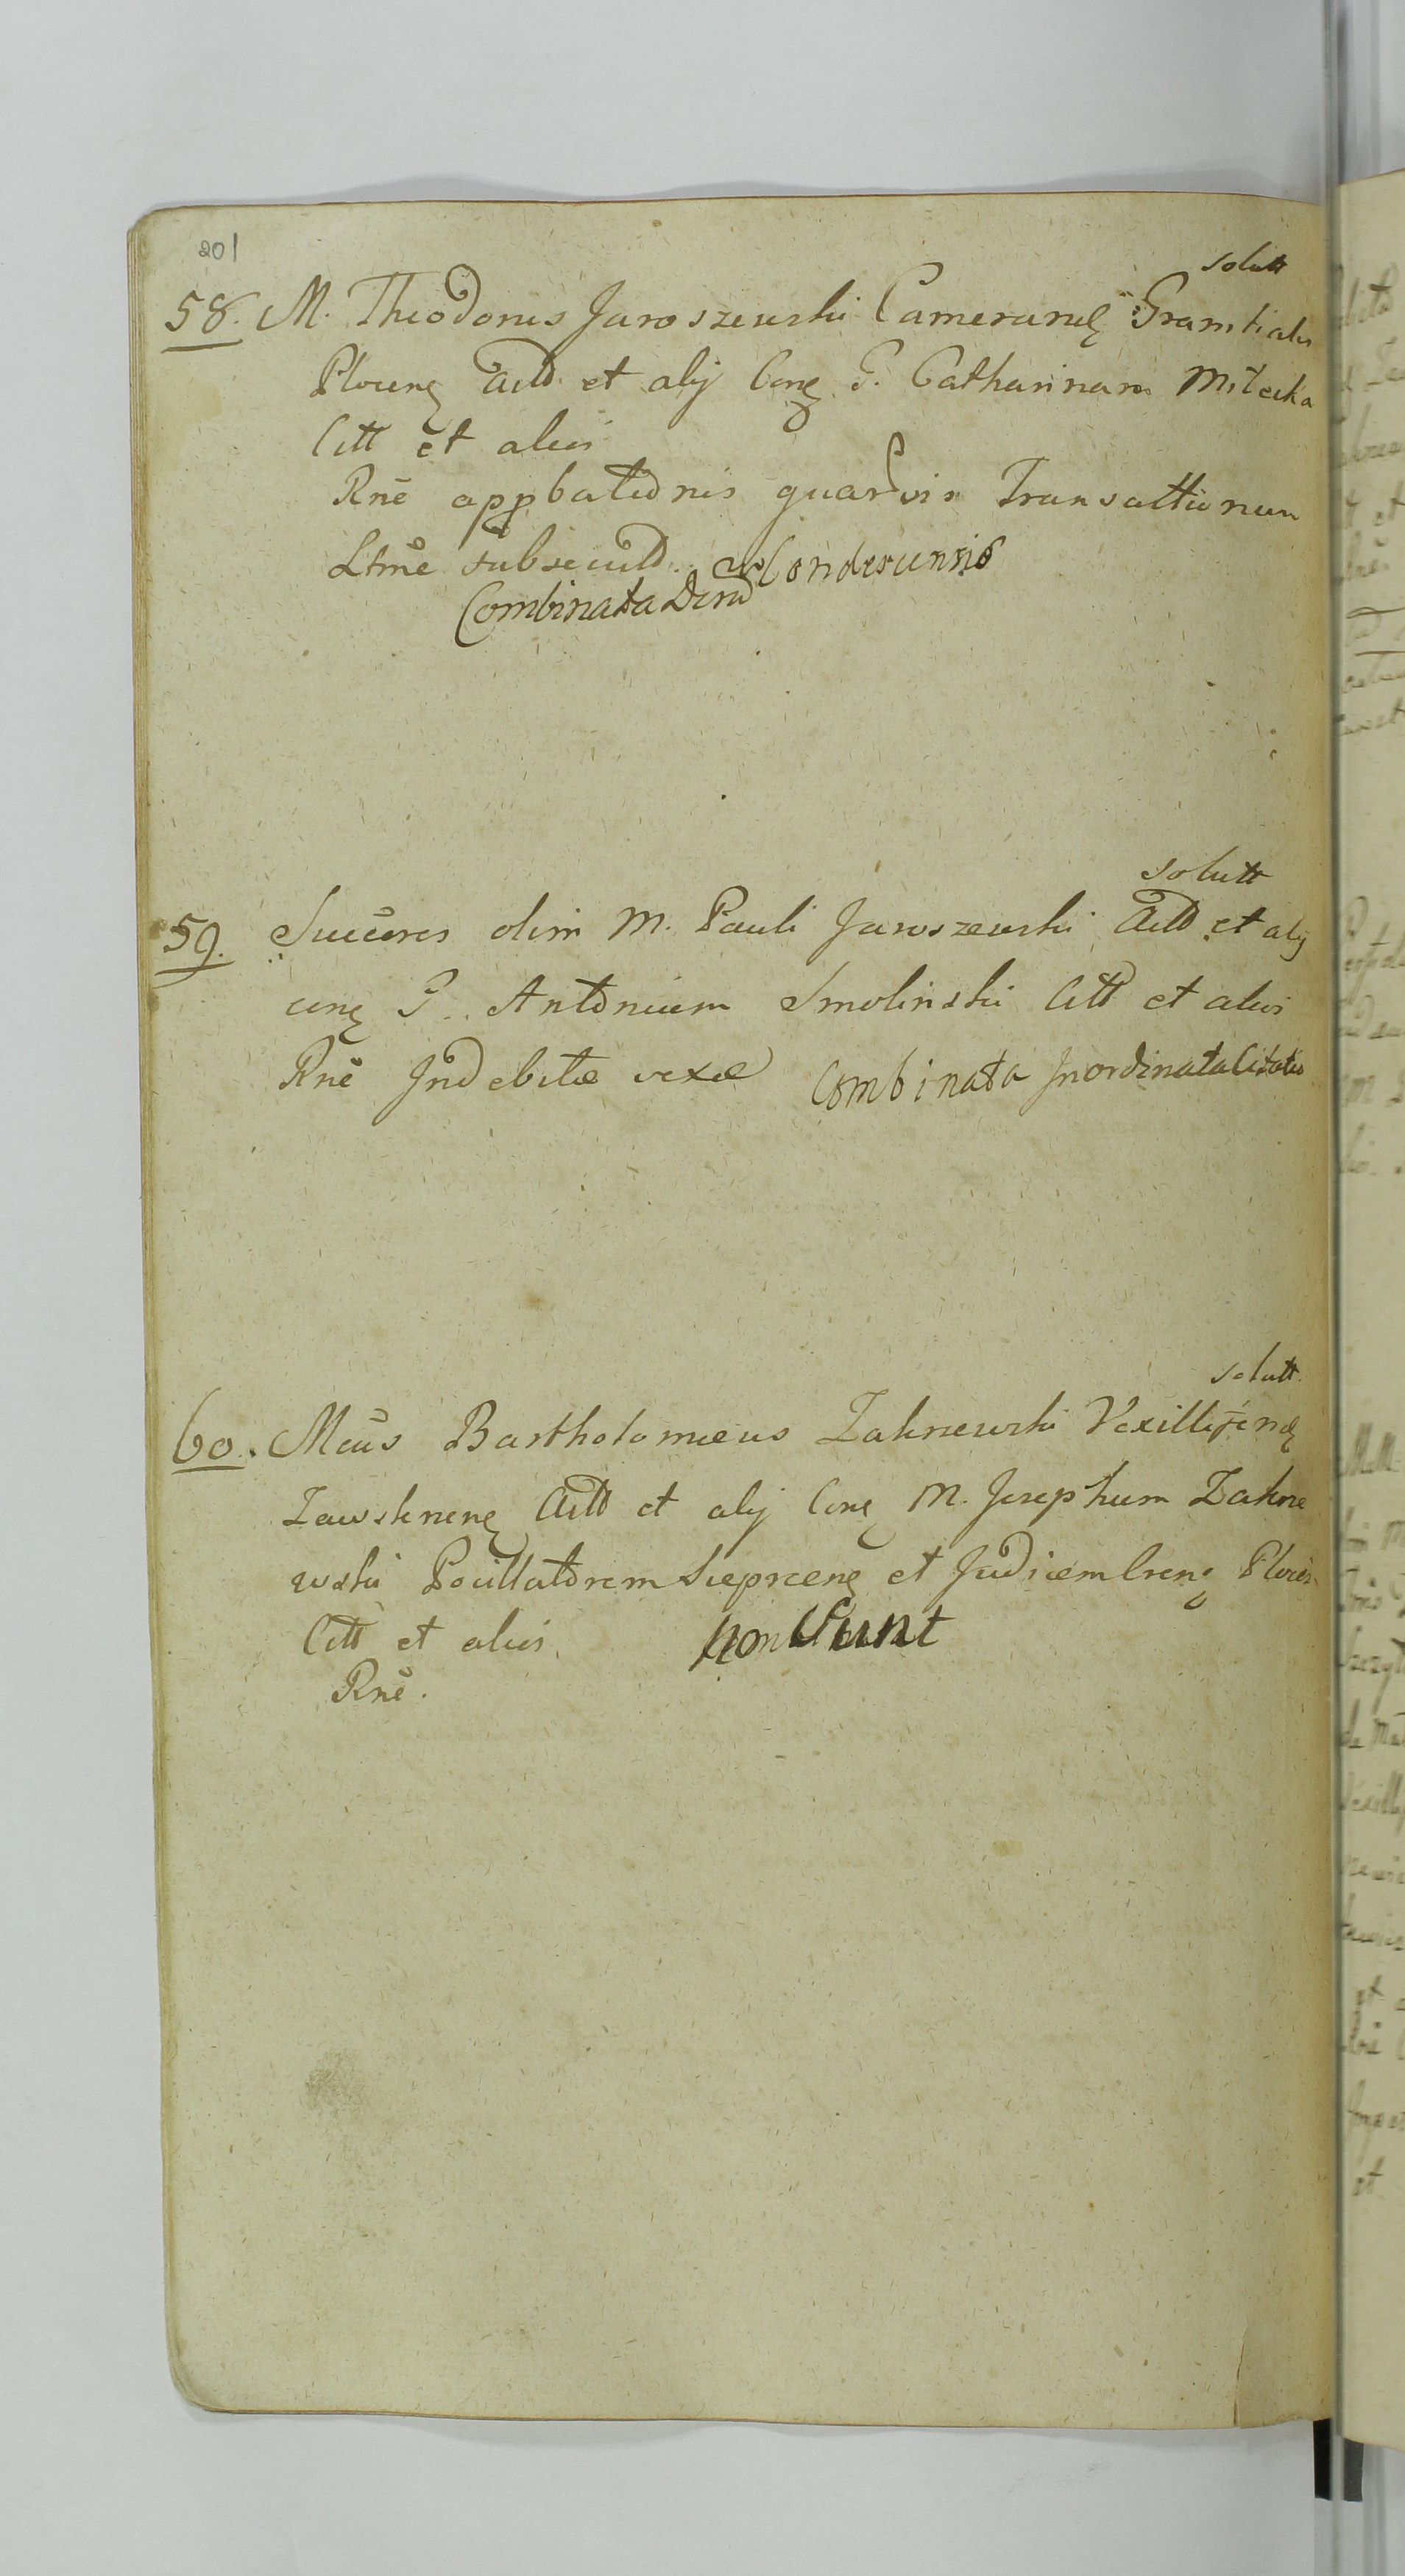 201
solutt
58. M. Theodorus Jaroszewski Cameranę Granitialis
Plocenę Actt et alij Conę G. Catharinam Milecka
Citt et alios
Rnē appbatidnis quarvis Transattionum
Ltmē subsecutt. Condescensio
Combinata
solutt
59. Succēres olim M. Pauli Jaroszewski Actt et alij
conę G. Antonium Smolinski Citt et alios
Rnē Indebitæ vexæ Combinata Inordinata Citatio
solutt.
60. Mcus Bartholomæus Zakrzewski Vexilliferię
Zawskrnenę Actt et alij Conę M. Josephum Zakrze
wski Pocillatorem Sieprcenę et Judicem Crenę Plocen
Citt et alios non sunt
Rnē.